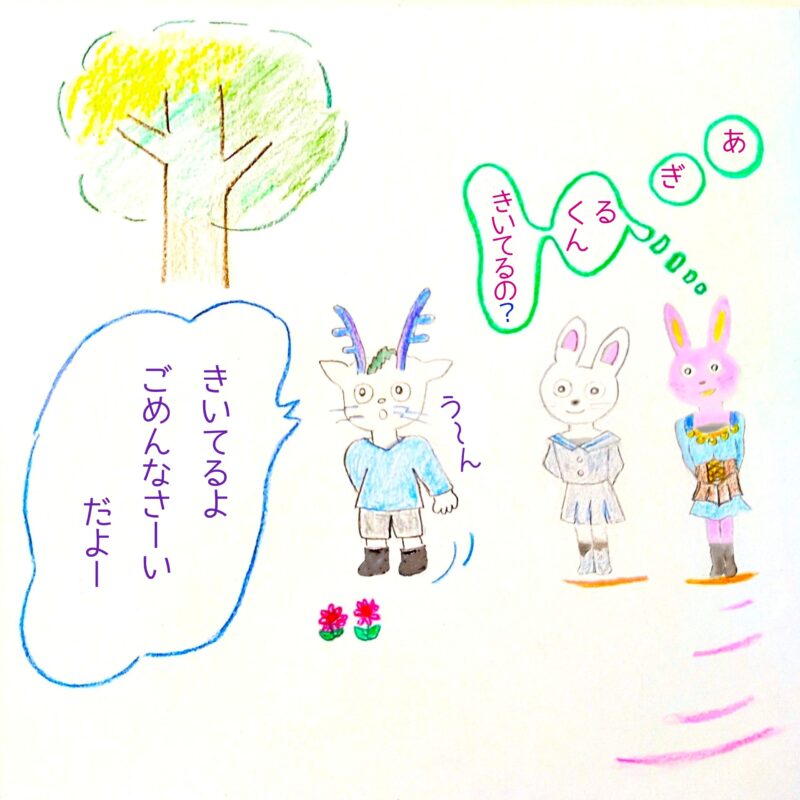 あ
ぎ
る
くん
きいてるの？
う〜ん
きいてるよ
ごめんなさーい
だよー